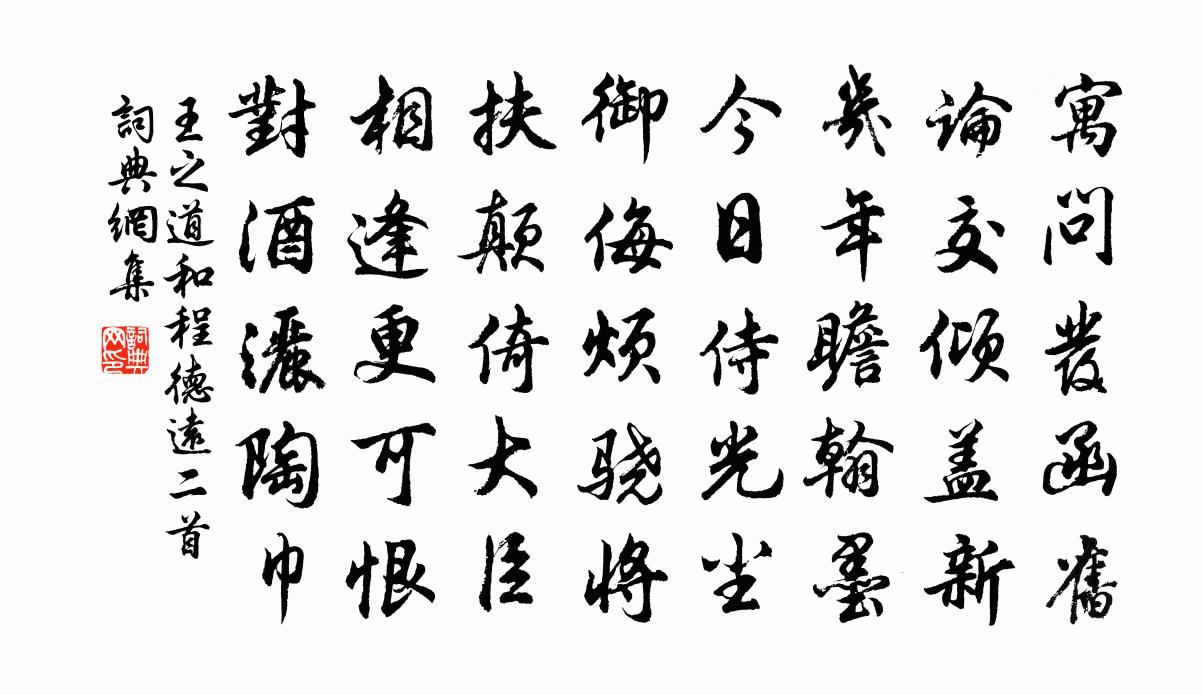 寓問發函舊
論交傾蓋新
幾年瞻翰墨
今日侍光尘
御侮煩骁將
扶颠倚大臣
相逢更可恨
對酒灑陶巾
王之道和程德遠二首
詞典網集
詞典网印